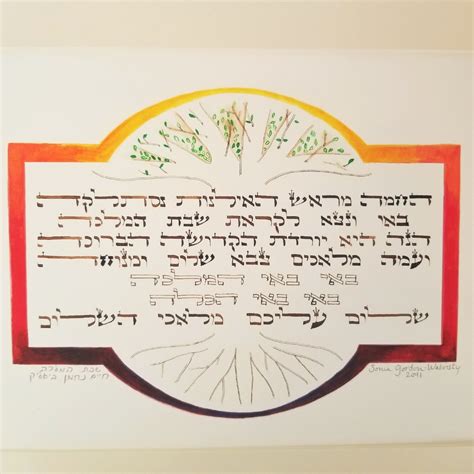 החמה מראש האילנות נסתלקה
באי ונצא לקראת שבת המלכה
הנה היא יורדת הקדושה הברוכה
ועמה מלאכים צבא שלום ומנוחה
באי באי המלכה
באי באי הכלה
שלום עליכם מלאכי השלום
שבת המלכה
חיים נחמן ביאליק
Sonia Gordon-Walinsky
2011